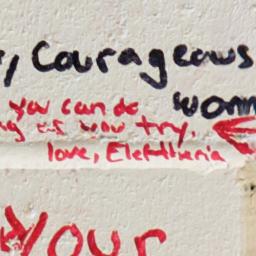 , Courageous
you can do wom
as you try.
love, Eleftheria
Your